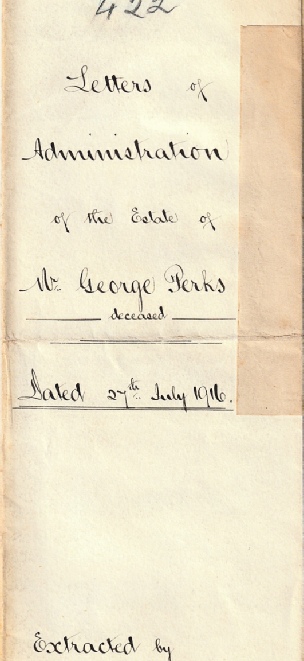 422
Letters of
Administration
of the Estate of
Mr. George Perks
deceased
Dated 27th July 1916.
Extracted by